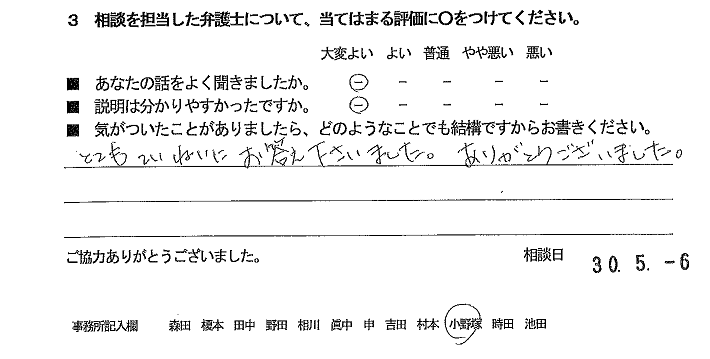 3 相談を担当した弁護士について、当てはまる評価に○をつけてください。
大変よい よい 普通 やや悪い 悪い
■ あなたの話をよく聞きましたか。 － － － － －
■ 説明は分かりやすかったですか。 － － － － －
■ 気がついたことがありましたら、どのようなことでも結構ですからお書きください。
とてもていねいに お答え下さいました。 ありがとうございました。
ご協力ありがとうございました。 相談日 30. 5. -6
事務所記入欄 森田 榎本 田中 野田 相川 眞中 申 吉田 村本 小野塚 時田 池田